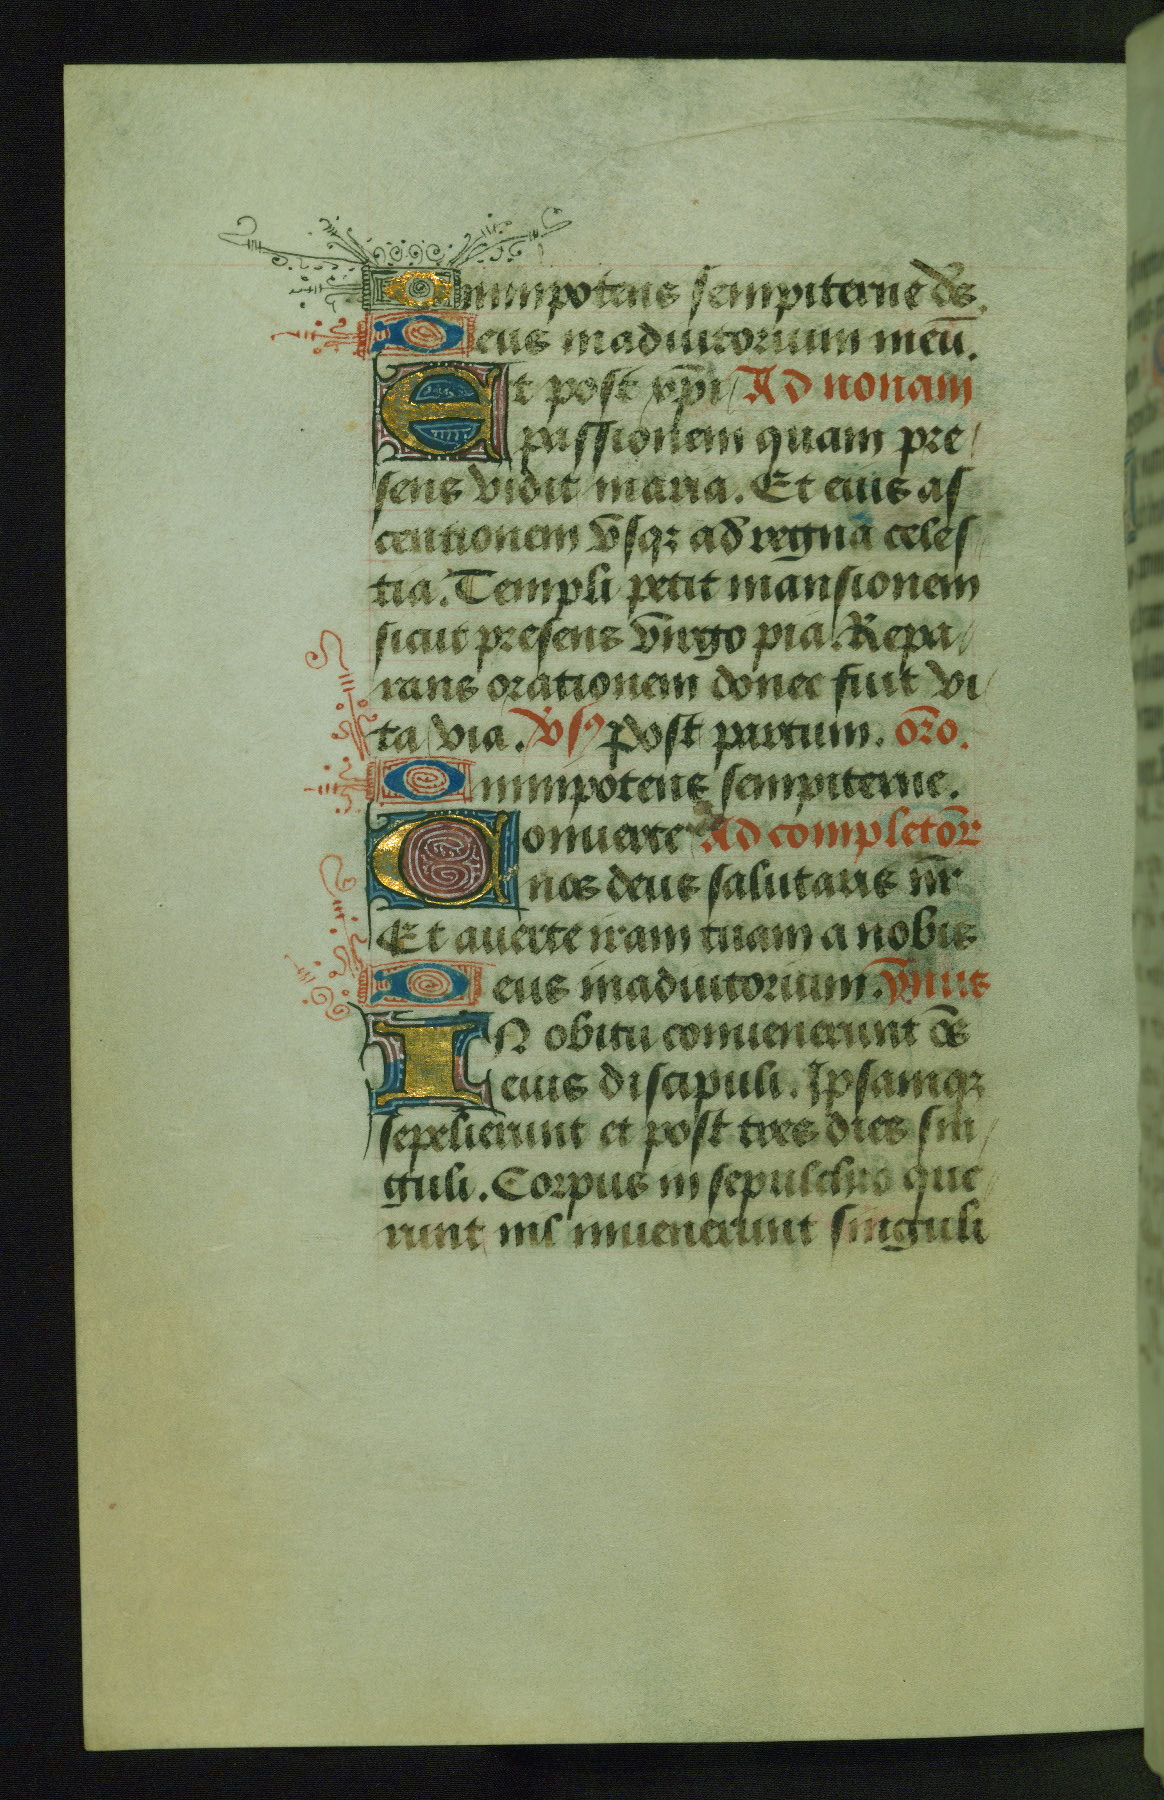 Omnipotens sempiterne ds̄.
Deus inadiutorium meū.
Et post xp̄i Ad nonam
passionem quam pre
sens vidit maria. Et eius as
centionem vsqꝫ ad regna celes
tia. Templi petit mansionem
sicut presens virgo pia. Repa
rans orationem donec fuit vi
ta via. vsꝰ Post partum. or̄o.
Omnipotens sempiterne.
Conuerte Ad completor̄
nos deus salutaris nr̄
Et auerte iram tuam a nobis
Deus inadiutorium. ymnus
IN obitu conuenerunt os̄
eius discipuli. Ipsamqꝫ
sepelierunt et post tres dies sin
guli. Corpus in sepulchro que
runt nil inuenerunt singuli